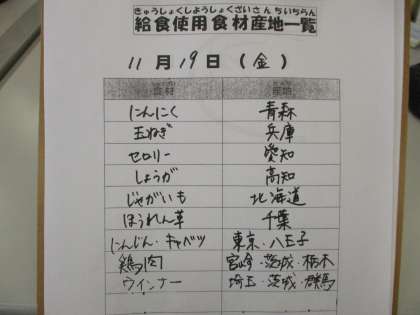 きゅうしょくしようしょくざいさんちいちらん
給食使用食材産地一覧
11月19日(金)
食材 産地
にんにく 青森
玉ねぎ 兵庫
セロリー 愛知
しょうが 高知
じゃがいも 北海道
ほうれん草 千葉
にんじん・キャベツ 東京・八王子
鶏肉 宮崎・茨城・栃木
ウインナー 埼玉・茨城・群馬